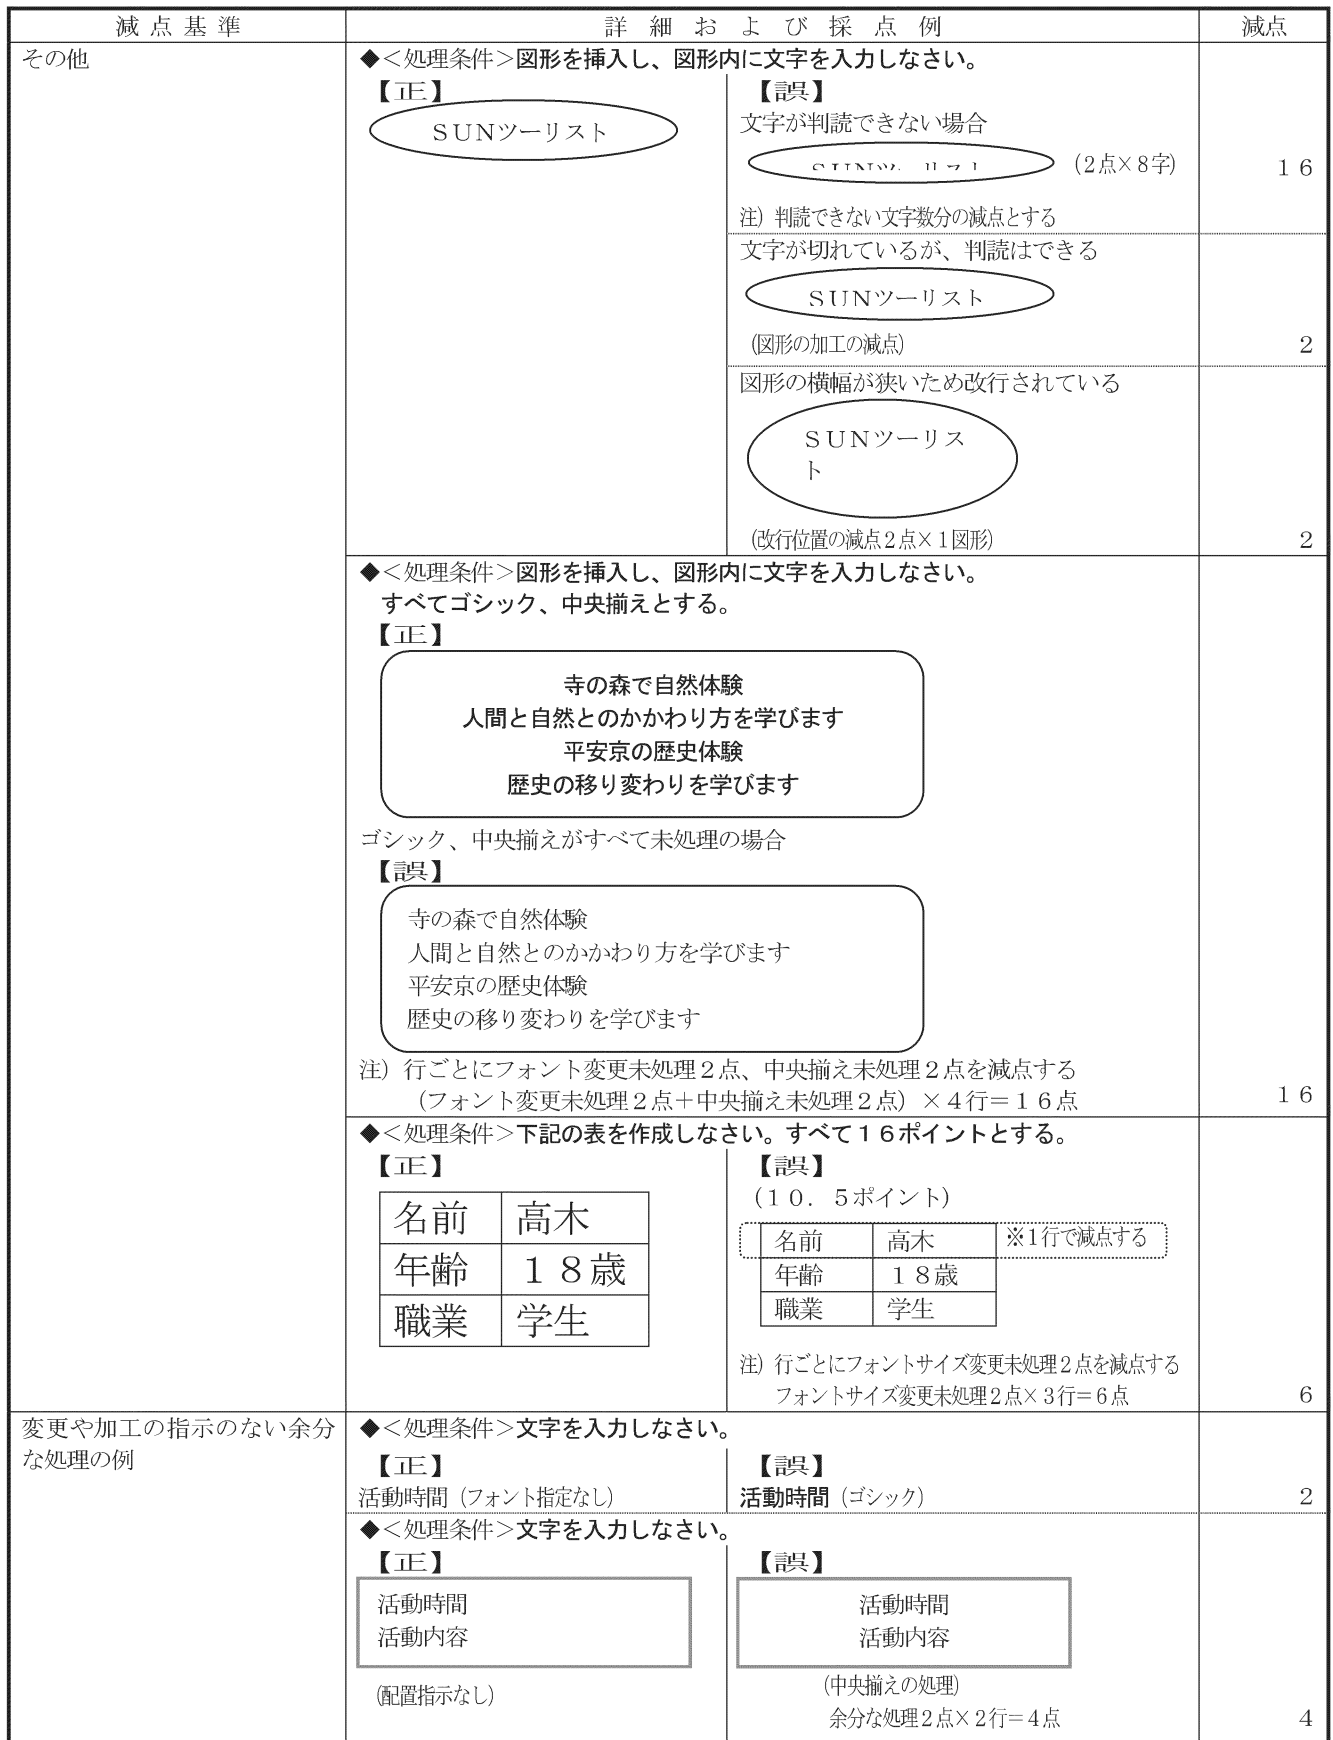 減点基準　詳細および採点例　減点
その他
◆＜処理条件＞図形を挿入し、図形内に文字を入力しなさい。
【正】
ＳＵＮツーリスト
【誤】
文字が判読できない場合
（２点×８字）
１６
注）判読できない文字数分の減点とする
文字が切れているが、判読はできる
ＳＵＮツーリスト
（図形の加工の減点）
２
図形の横幅が狭いため改行されている
ＳＵＮツーリス
ト
（改行位置の減点２点×１図形）
２
◆＜処理条件＞図形を挿入し、図形内に文字を入力しなさい。
すべてゴシック、中央揃えとする。
【正】
寺の森で自然体験
人間と自然とのかかわり方を学びます
平安京の歴史体験
歴史の移り変わりを学びます
ゴシック、中央揃えがすべて未処理の場合
【誤】
寺の森で自然体験
人間と自然とのかかわり方を学びます
平安京の歴史体験
歴史の移り変わりを学びます
注）行ごとにフォント変更未処理２点、中央揃え未処理２点を減点する
（フォント変更未処理２点＋中央揃え未処理２点）×４行＝１６点
１６
◆＜処理条件＞下記の表を作成しなさい。すべて１６ポイントとする。
【正】
名前　高木
年齢　１８歳
職業　学生
【誤】
（１０．５ポイント）
名前　高木　※１行で減点する
年齢　１８歳
職業　学生
注）行ごとにフォントサイズ変更未処理２点を減点する
フォントサイズ変更未処理２点×３行＝６点
６
変更や加工の指示のない余分
な処理の例
◆＜処理条件＞文字を入力しなさい。
【正】
活動時間（フォント指定なし）
【誤】
活動時間（ゴシック）
２
◆＜処理条件＞文字を入力しなさい。
【正】
活動時間
活動内容
（配置指示なし）
【誤】
活動時間
活動内容
（中央揃えの処理）
余分な処理２点×２行＝４点
４